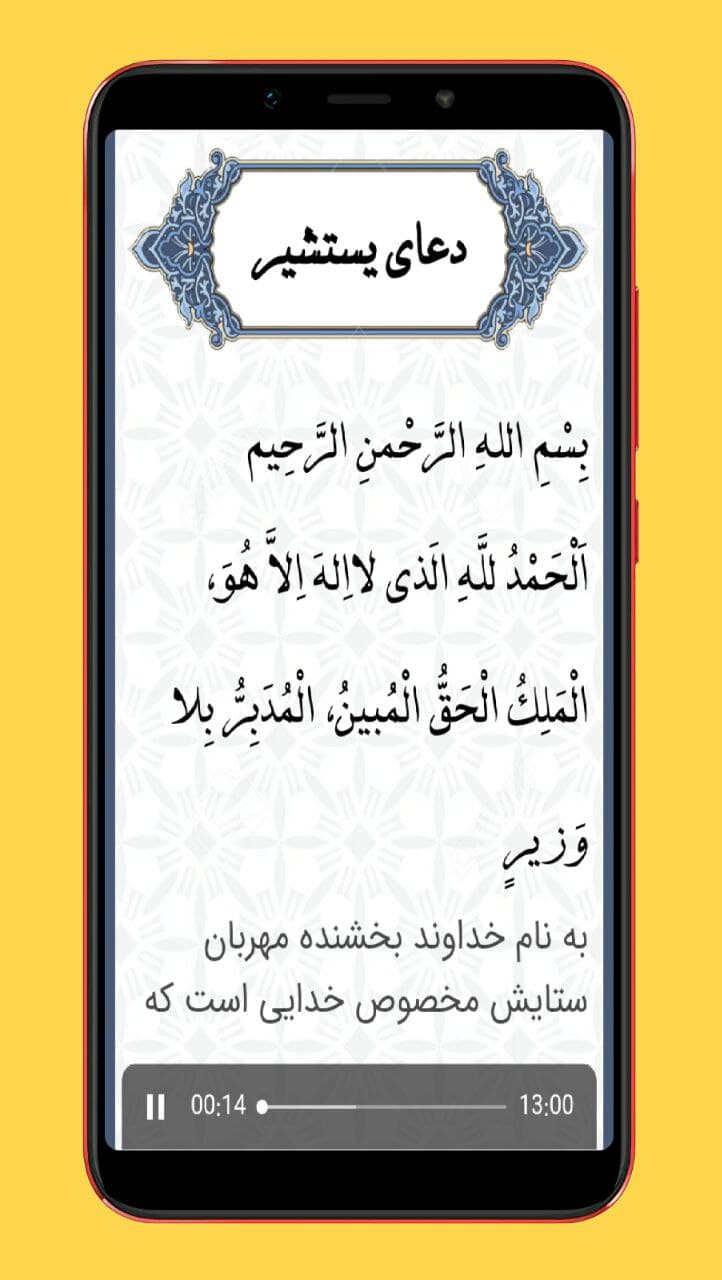 دعای یستشیر
بِسْمِ اللهِ الرَّحْمنِ الرَّحِیم
اَلْحَمْدُ للَّهِ الَذی لااِلهَ اِلاَّ هُوَ،
الْمَلِكُ الْحَقُّ الْمُبینُ، الْمُدَبِرُّ بِلا
وَزیرٍ
به نام خداوند بخشنده مهربان
ستایش مخصوص خدایی است که
00:14 13:00